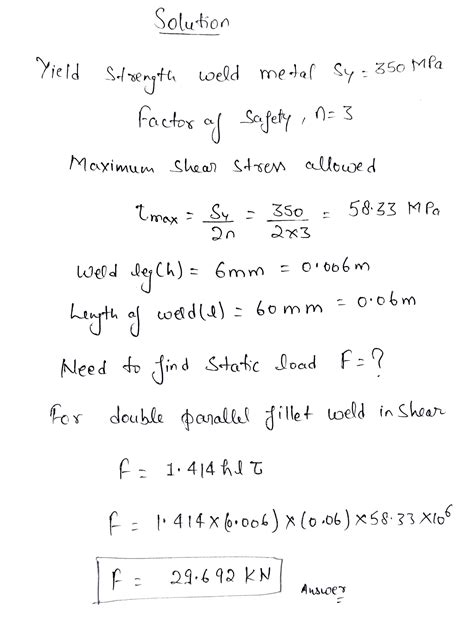 Solution
Yield Strength weld metal Sy = 350 MPa
Factor of Safety, n = 3
Maximum Shear Stress allowed
τmax = Sy/2n = 350/2×3 = 58.33 MPa
Weld leg(h) = 6mm = 0.006m
Length of weld(l) = 60 mm = 0.06m
Need to find Static load F = ?
For double parallel fillet weld in Shear
F = 1.414 h l τ
F = 1.414 × (0.006) × (0.06) × 58.33 × 10⁶
F = 29.692 KN Answer